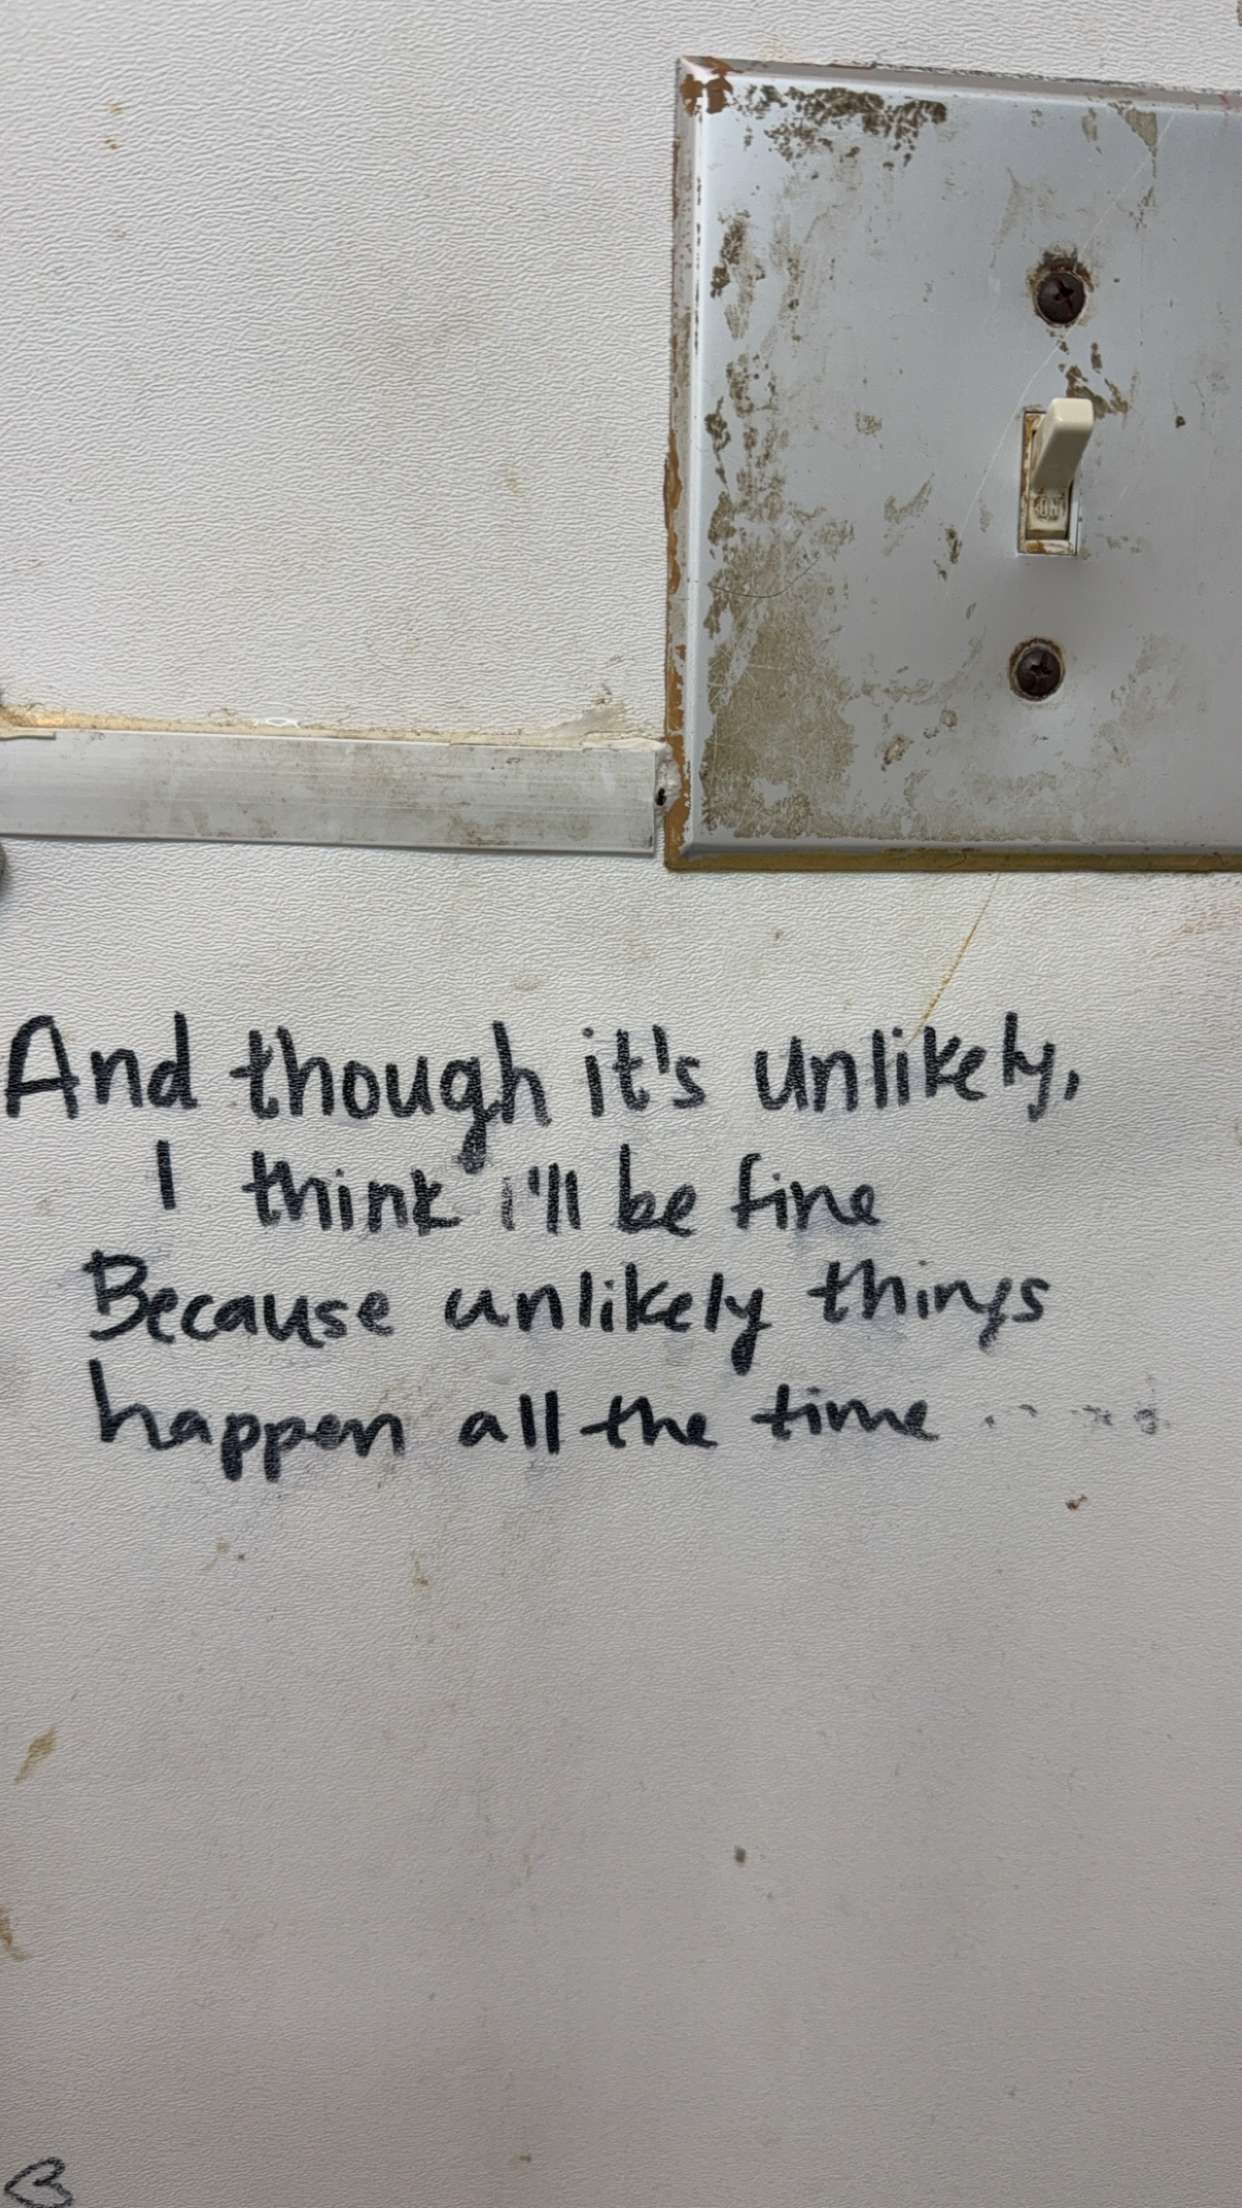 ON
And though it's unlikely,
I think i'll be fine
Because unlikely things
happen all the time